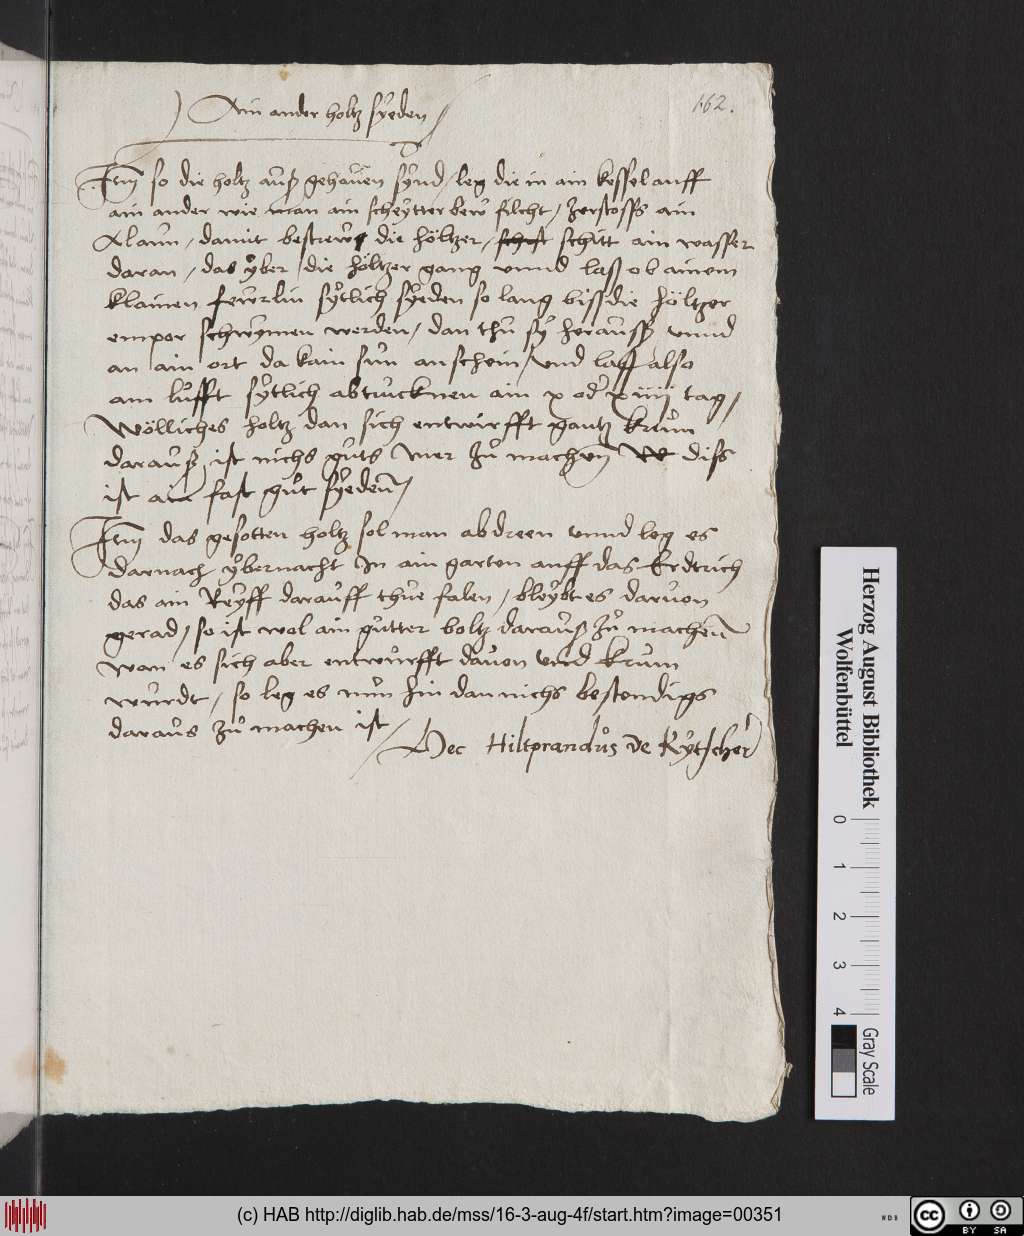 162.
Ain ander holtz sÿeden /
Itm so die holtz auß gehauen synd / leg die in ain kessel auff
ain ander wie man ain scheytter bew filcht / zerstoss ain
Alaun / damit bestrew die höltzer / schitt ain wasser
daran / das yber die höltzer gang vnnd lass ob ainem
klainen feurlin sytlich syeden so lang biss die höltzer
empor schwymen werden / dan thu sy herauss vnnd
an ain ort da kain sun an schein / vnd lass also
am lufft sytlich abtrucknen ain x od xiiii tag /
Wölliches holtz dan sich entwirfft gantz krum
darauß ist nichs guts mer zu machen diss
ist ain fast gut syeden /
Itm das gesotten holtz sol man abdreen vnnd leg es
darnach ybernacht In ain garten auff das Erdtrich
das ain Reyff darauff thue falen / bleybt es daruon
gerad / so ist wol ain gutter boltz darauß zu machen
wan es sich aber entwurfft dauon vnd krum
wurdt / so leg es nun hin dan nichs bestendigs
daraus zu machen ist /
Hec Hiltprandus de Rytscher
Herzog August Bibliothek
Wolfenbüttel
0 1 2 3 4
Gray Scale
(c) HAB http://diglib.hab.de/mss/16-3-aug-4f/start.htm?image=00351
WDB
cc BY SA